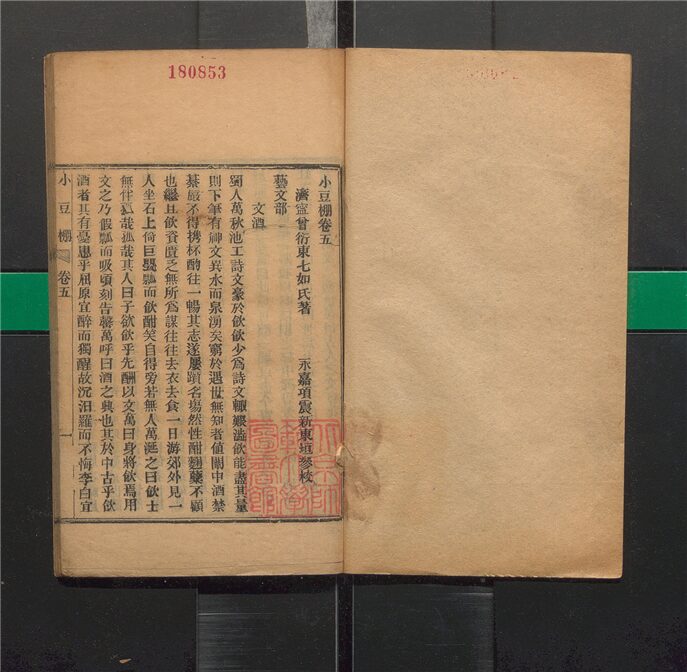 180853
小豆棚卷五
濟寧曾衍東七如氏著 永嘉項震新東垣參校
藝文部
文酒
蜀人萬秋池工詩文豪於飲飲少爲詩文輒艱澁飲能盡其量
則下筆有神文異水而泉湧矣窮於遇世無知者值關中酒禁
綦嚴不得攜杯酌往一暢其志遂屢躓名塲然性酣麯糵不顧
也繼且飲資匱乏無所爲謀往往去衣去食一日游郊外見一
人坐石上倚巨甕瓢而飲酣笑自得旁若無人萬涎之曰飲士
無伴孤哉孤哉其人曰子欲飲乎先酬以文萬曰身將飲焉用
文之乃假瓢而吸頃刻告罄萬呼曰酒之興也其於中古乎飲
酒者其有憂患乎屈原宜醉而獨醒故沉汨羅而不悔李白宜
小豆棚 卷五 一